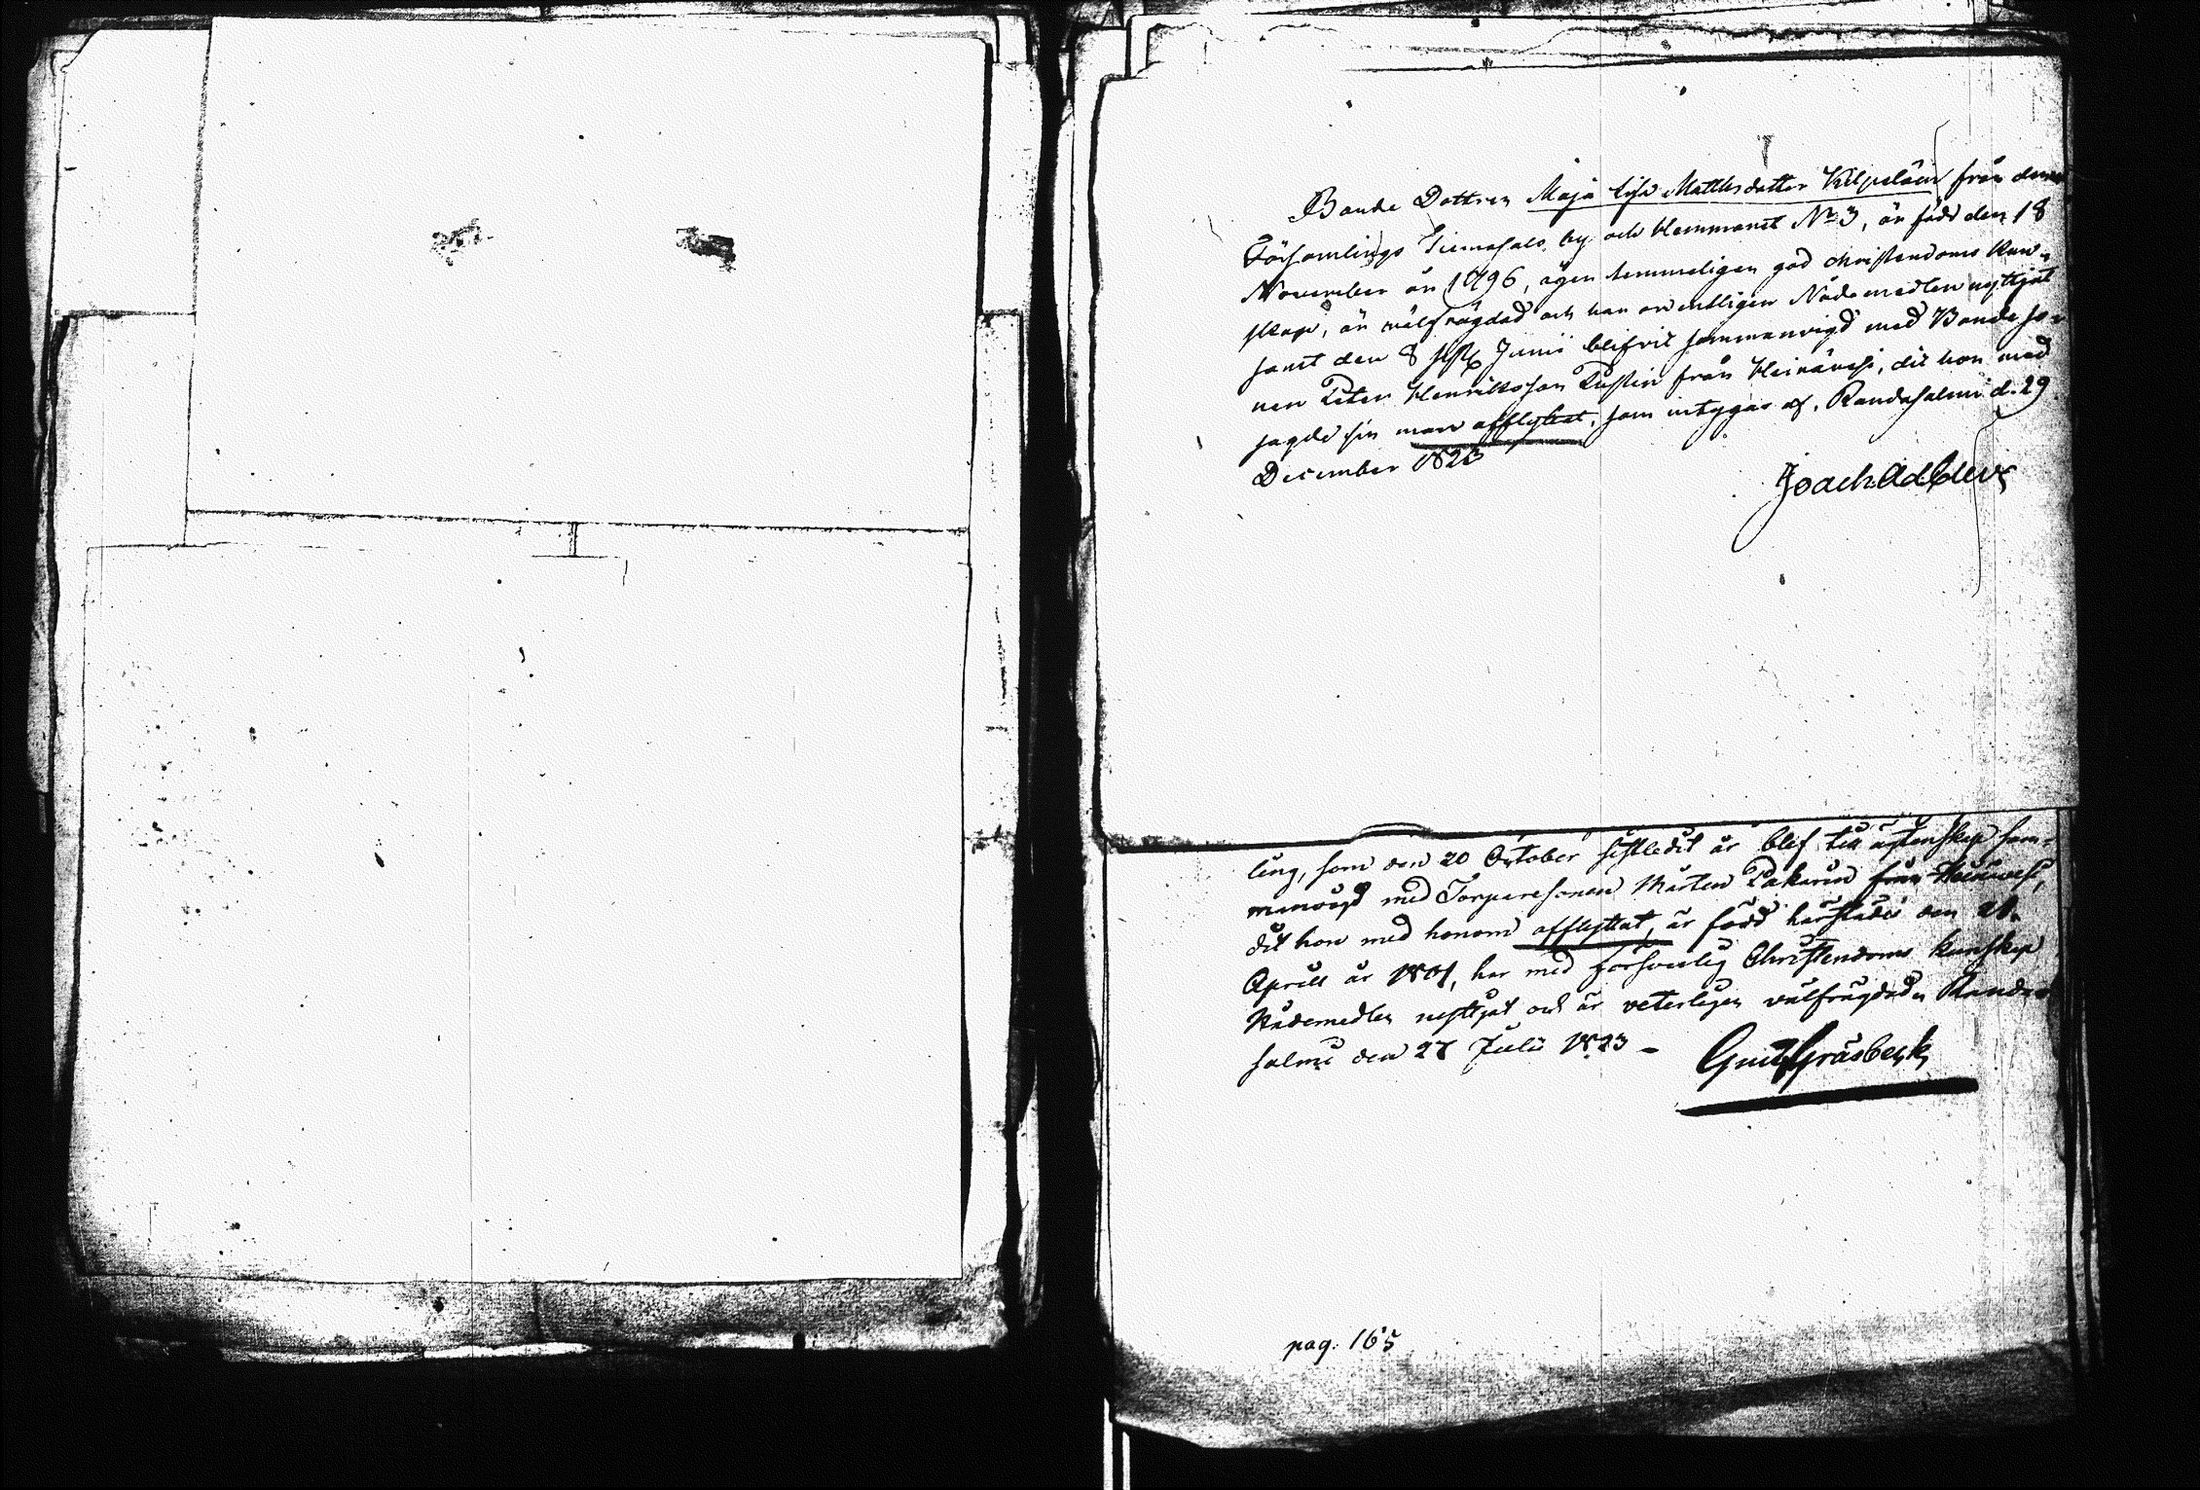 Bonde Dottren Maja Lisa Mattsdotter Kilpeläin från denna
Församlings Tiemasalo by och Hemmanet No 3, är född den 18
November år 1796, äger temmeligen god christendoms kun-
skap, är välfrägdad och har ordentligen Nådemedlen nyttjat
samt den 8 sistl. Junii blifvit sammanvigd med Bonde so-
nen Peter Henriksson Pustin från Heinävesi, dit hon med
sagde sin man afflyttat, som intygar af. Randasalmi d. 29
December 1823
Joach. Ad. Cleve
ling, som den 20 October sistledit år blef till äktenskap sam-
manvigd med Torparesonen Mårten Pakarin från Heinävesi,
dit hon med honom afflyttat, är född härstädes den 21
Aprill år 1801, har med försvarlig Christendoms kunskap
Nådemedlen nyttjat och är veterligen välfrägdad. Randa-
salmi den 27 Julii 1823 -
Gust. Gråsbeck
pag. 165